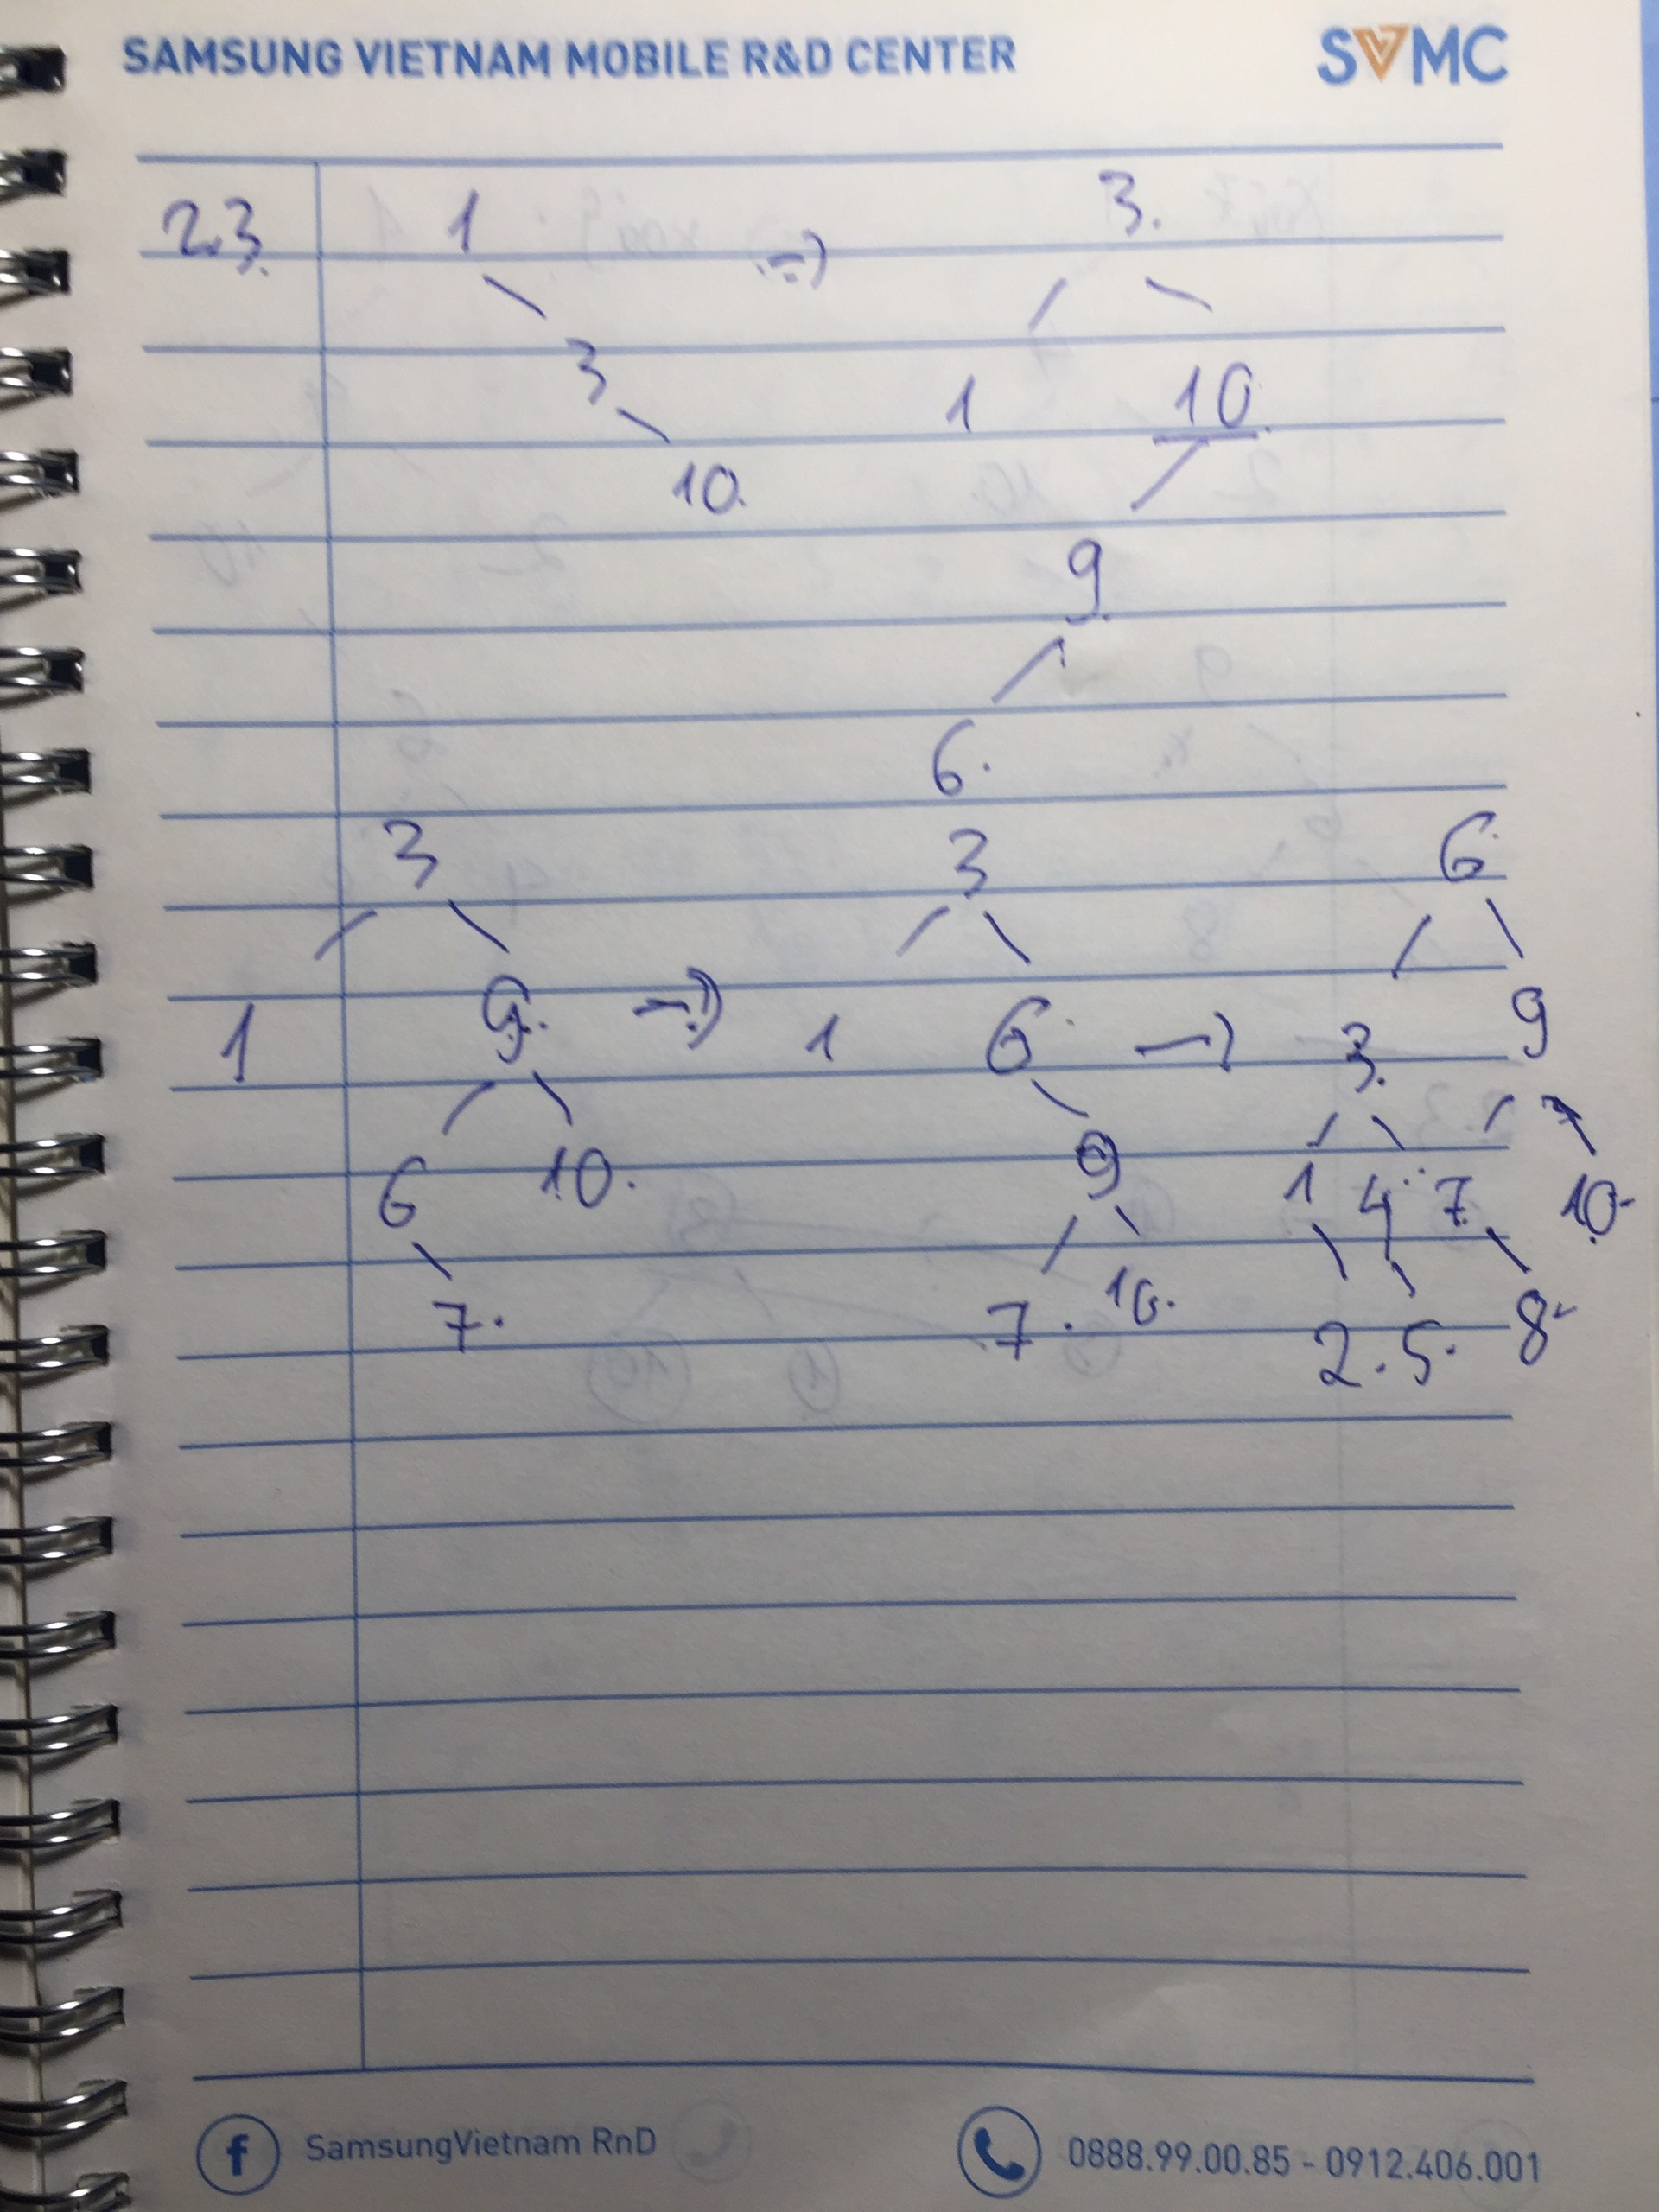 SAMSUNG VIETNAM MOBILE R&D CENTER SVMC
2.3. 1 3.
3 1 10.
10.
9.
6.
3 3 6
1 9. 1 6 3. 9
6 10. 9 1 4 7 10
7. 7. 10. 2. 5. 8
SamsungVietnam RnD 0888.99.00.85 - 0912.406.001